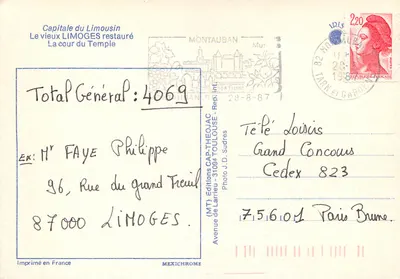 Capitale du Limousin
Le vieux LIMOGES restauré
La cour du Temple
MONTAUBAN
28-8-87
2,20
Total Général : 4069
Ex: Mr FAYE Philippe
96, Rue du grand Treuil
87000 LIMOGES.
(MT) Editions CAP-THEOJAC
Avenue de Larrieu - 31094 TOULOUSE - Rep. Int.
Photo J.D. Sudres
Télé Loisirs
Grand Concours
Cedex 823
75601 Paris Brune.
Imprimé en France
MEXICHROME